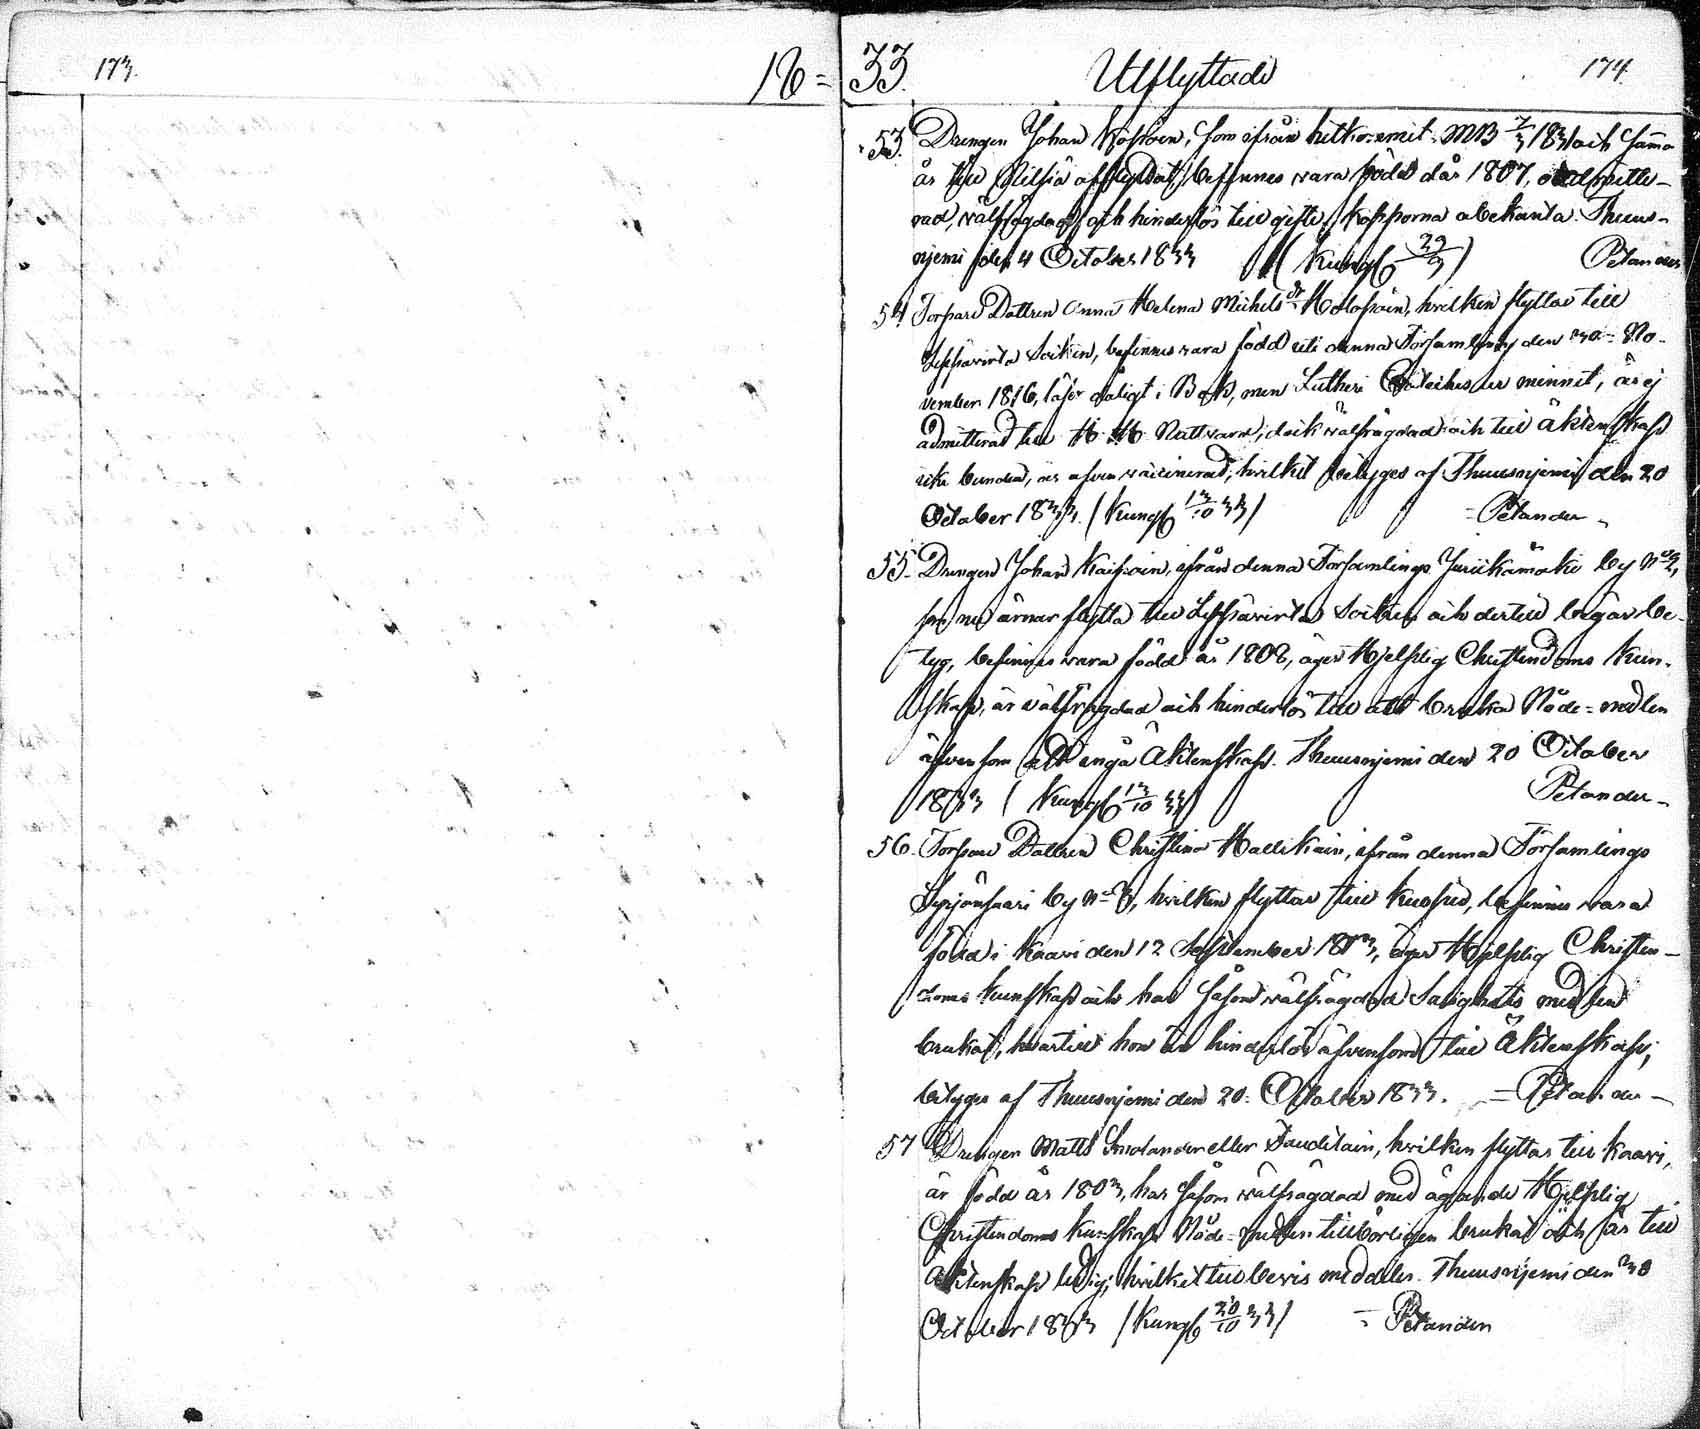 173.
18=33.
Utflyttade
174.
53. Drengen Johan som ifrån hitkommit MB 7/3 183 och samma
år till Nilsiä afflyttat, befinnes vara född år 1807, admitte-
rad, välfrägdad och hinderlös till gifte, kopporna obekanta. Thuus-
njemi den 4 October 1833 (Kungf 29/9) Petander
54 Torpare Dottren Anna Helena Michels dr hvilken flyttar till
Leppävirta Sokn, befinnes vara född uti denna Församling den 30 No-
vember 1816, läser dåligt i Bok, men Lutheri Cateches ur minnet, är ej
admitterad till H. H. Nattvard, dock välfrägdad och till äktenskap
icke bunden, är äfven vaccinerad, hvilket betyges af Thuusnjemi den 20
October 1833. (Kungf 13/10 33) = Petander
55. Drengen Johan ifrån denna Församlings by No 2,
som nu ärnar flytta till Leppävirta Sokn och dertill begär be-
tyg, befinnes vara född år 1808, äger Hjelplig Christendoms kun-
skap, är välfrägdad och hinderlös till att bruka Nåde-medlen
äfvensom att ingå Äktenskap. Thuusnjemi den 20 October
1833 (Kungf 13/10 33) Petander
56. Torpare Dottren Christina ifrån denna Församlings
by No 3, hvilken flyttar till Kuopio, befinnes vara
född i Kaavi den 12 September 1813, äger Hjelplig Christen-
doms kunskap och har såsom välfrägdad Salighets medlen
brukat, hvartill hon är hinderlös äfvensom till Äktenskap,
betyges af Thuusnjemi den 20 October 1833. = Petander
57 Drengen Matts Smolander eller hvilken flyttar till Kaavi,
är född år 1803, har såsom välfrägdad med ägande Hjelplig
Christendoms kunskap Nåde-medlen tillbörligen brukat och är till
Äktenskap ledig, hvilket till bevis meddeles. Thuusnjemi den 30
October 1833 (Kungf 20/10 33) = Petander